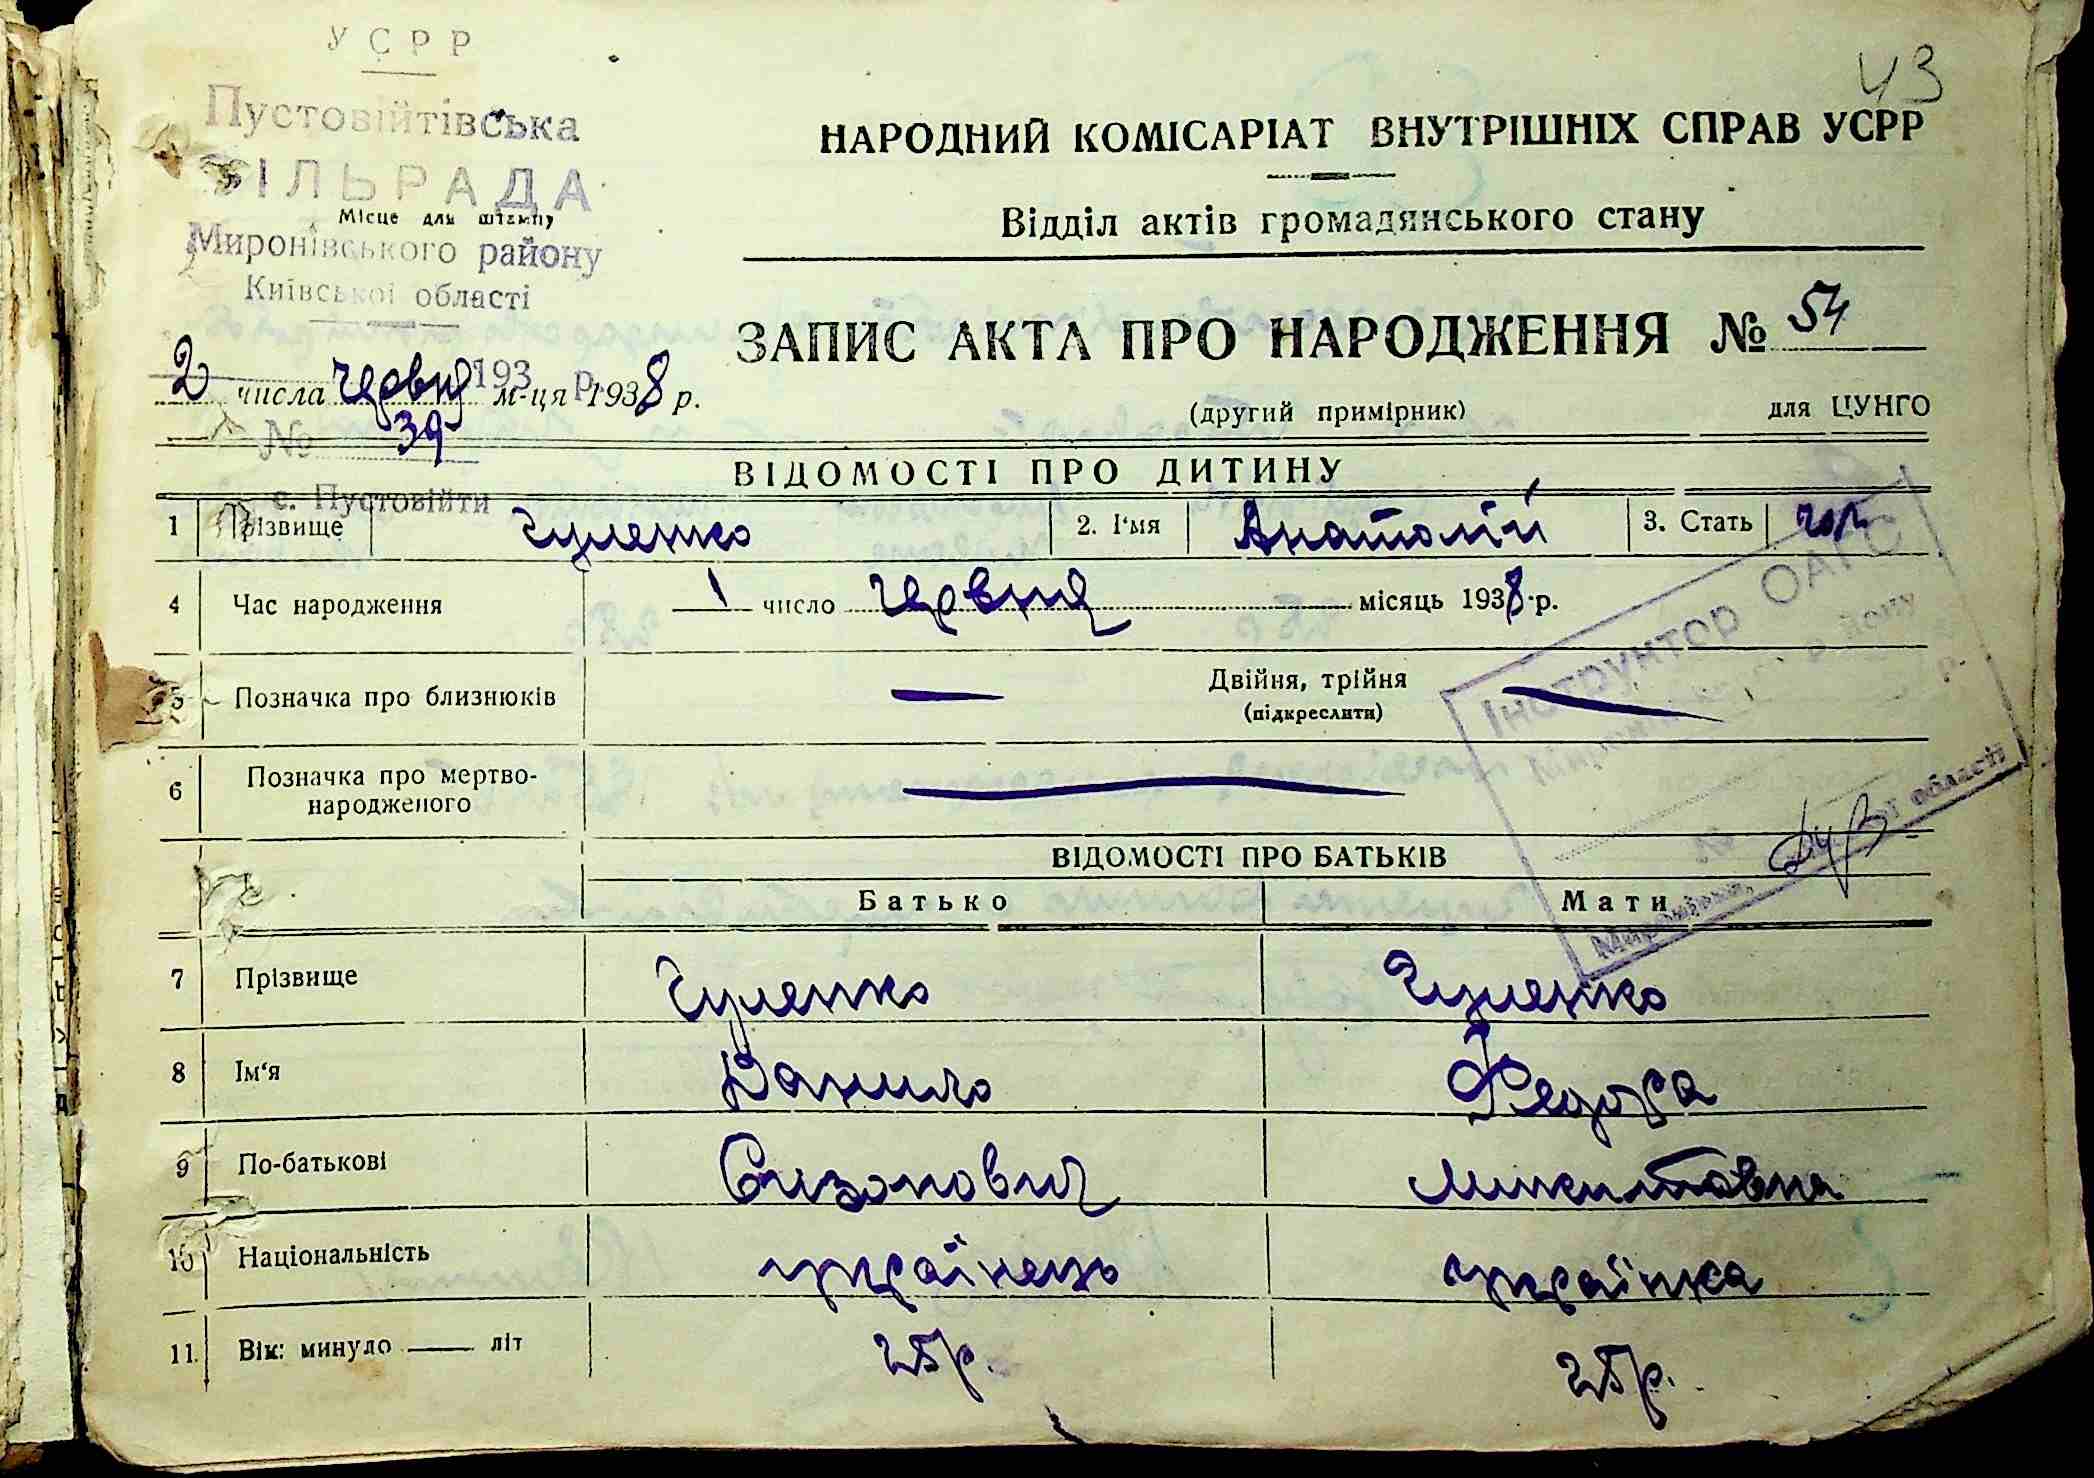 43
УСРР
Пустовійтівська
СІЛЬРАДА
Місце для штампу
Миронівського району
Київської області
193 р.
2 числа червня м-ця 1938 р.
№ 39
с. Пустовійти
НАРОДНИЙ КОМІСАРІАТ ВНУТРІШНІХ СПРАВ УСРР
Відділ актів громадянського стану
ЗАПИС АКТА ПРО НАРОДЖЕННЯ № 54
(другий примірник) для ЦУНГО
ВІДОМОСТІ ПРО ДИТИНУ
1 Прізвище Гуленко 2. І'мя Анатолій 3. Стать чол
4 Час народження 1 число червня місяць 1938 р.
5 Позначка про близнюків — Двійня, трійня
(підкреслити)
6 Позначка про мертво-
народженого
Інструктор ОАГС
області
ВІДОМОСТІ ПРО БАТЬКІВ
Батько Мати
7 Прізвище Гуленко Гуленко
8 Ім'я Данило Федора
9 По-батькові Сизонович Микитовна
10 Національність українець українка
11. Вік: минуло — літ 25р. 25р.